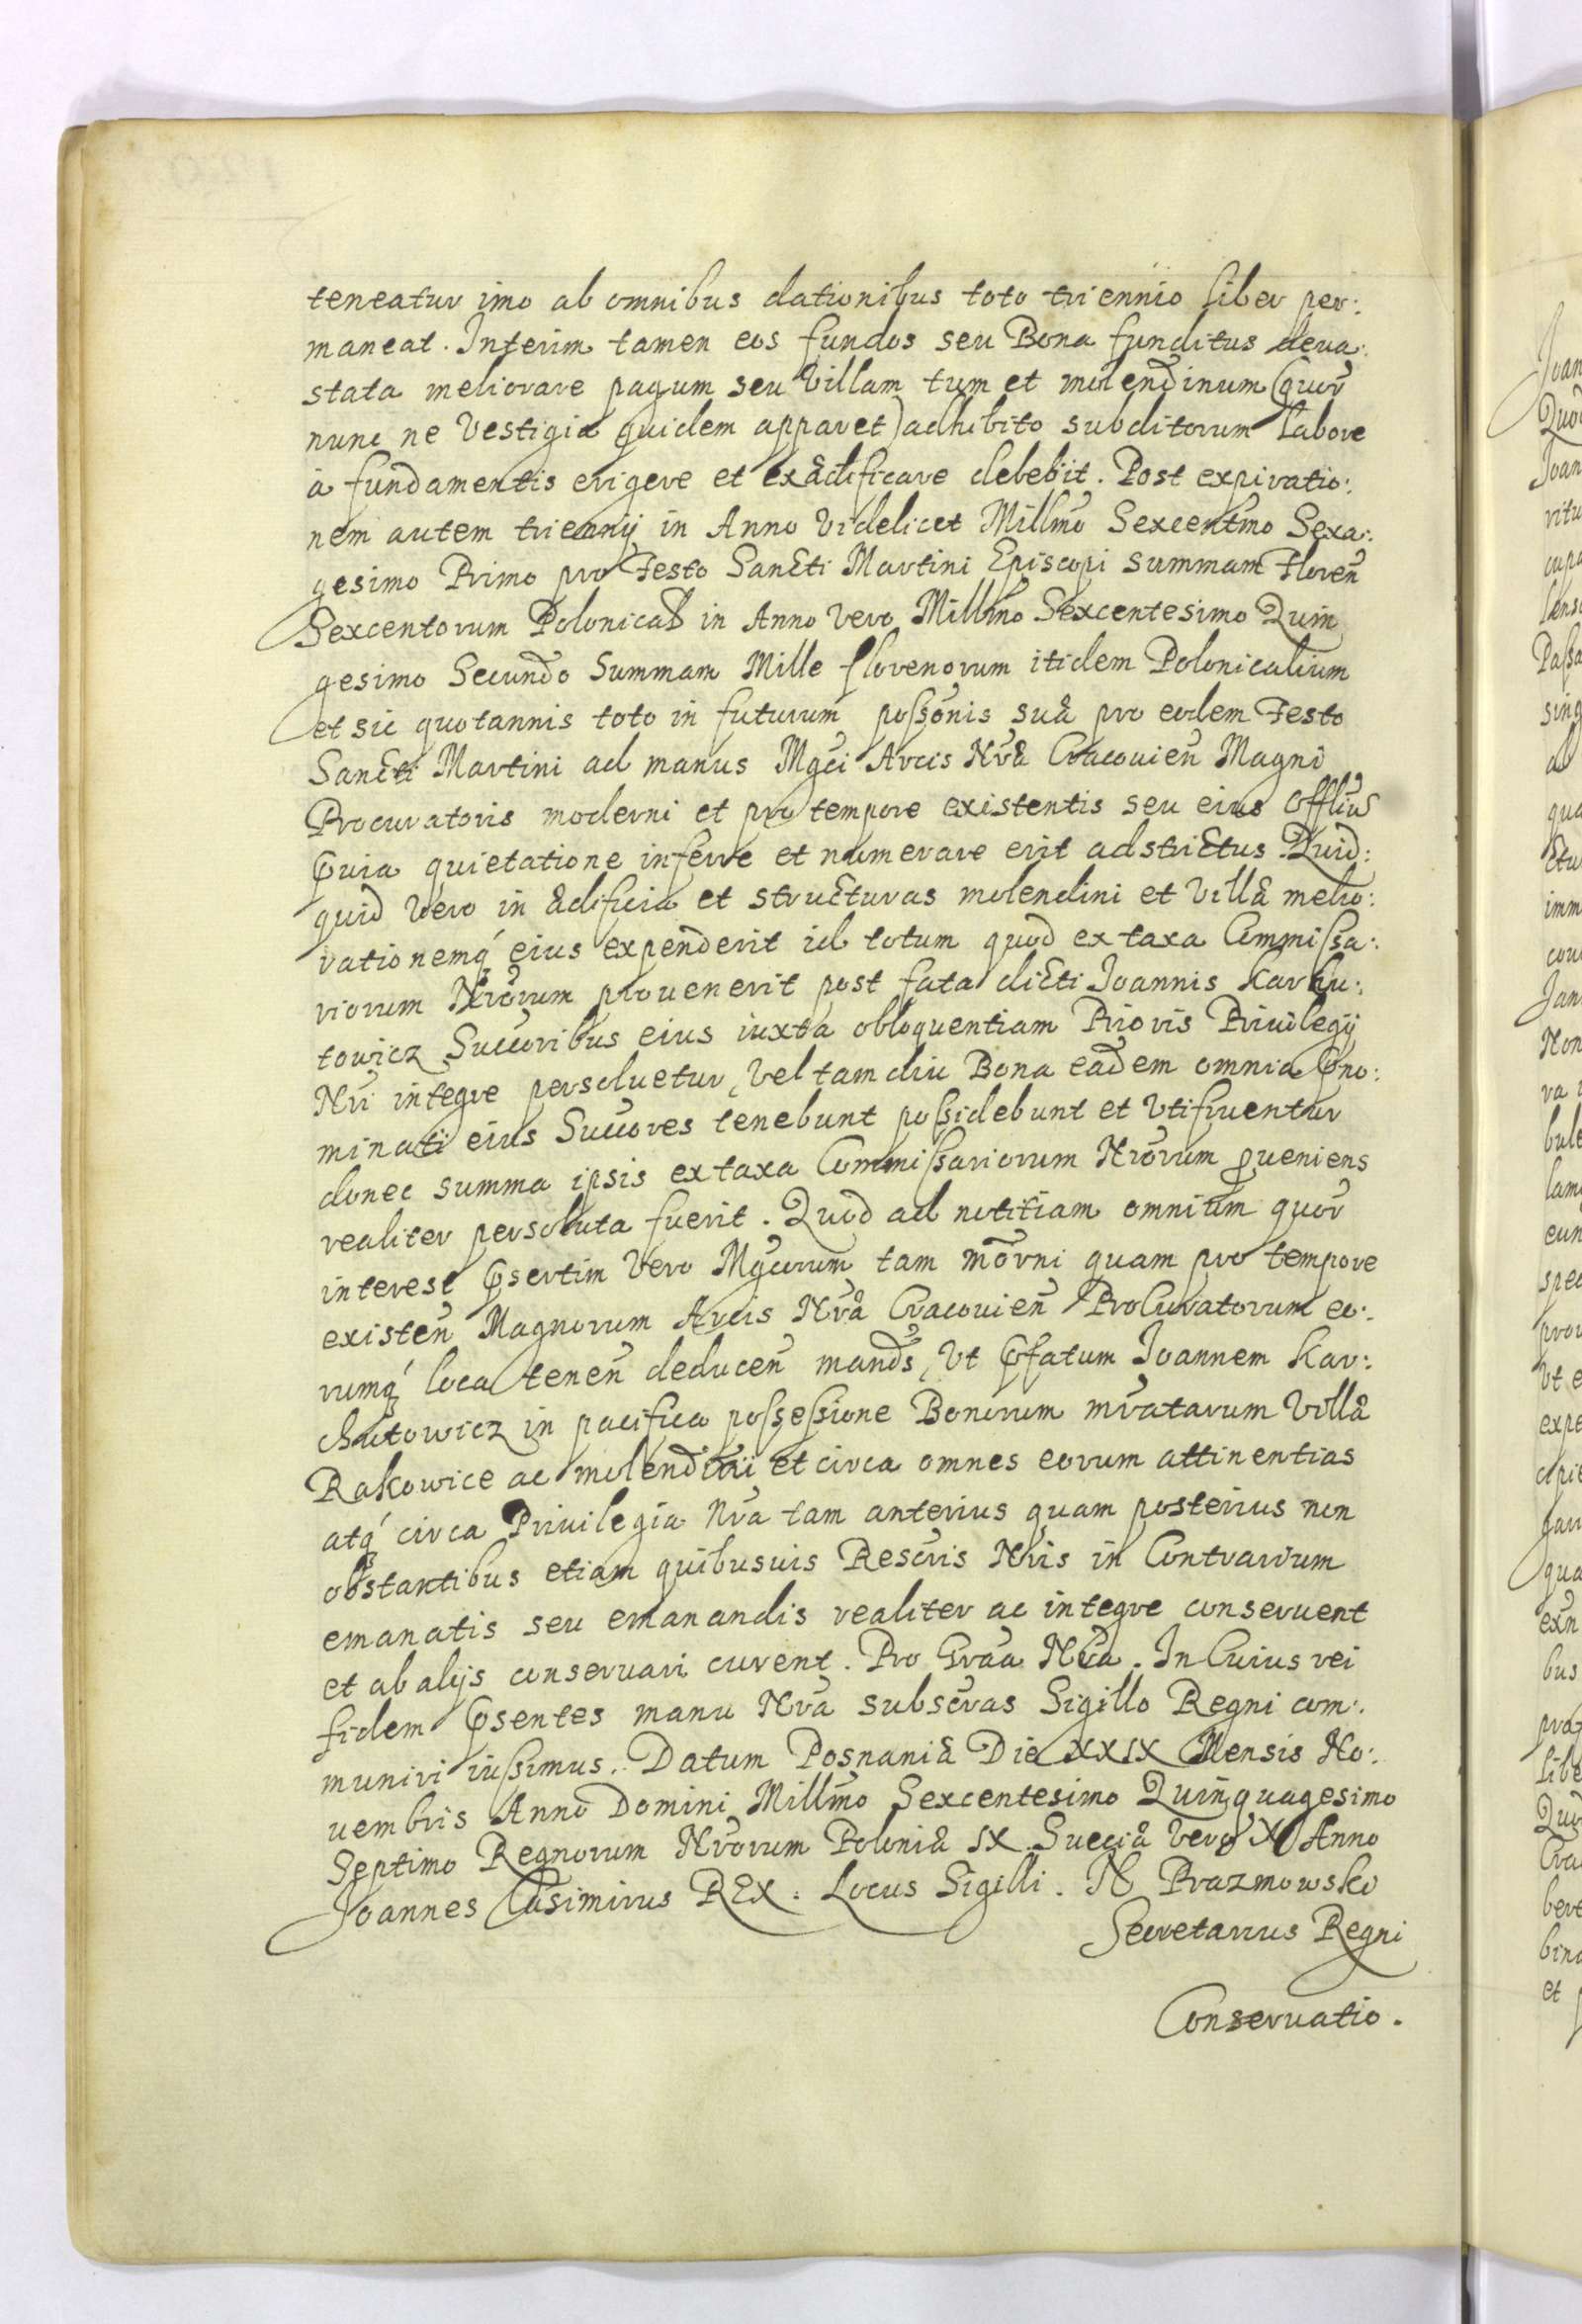 teneatur imo ab omnibus dationibus toto triennio liber per:
maneat. Interim tamen eos fundos seu Bona funditus deua:
stata meliorare pagum seu Villam tum et molendinum (quor̃
nunc ne Vestigia quidem apparet) adhibito subditorum labore
à fundamentis erigere et exædificare debebit. Post expiratio:
nem autem triennij in Anno Videlicet Millm̃o Sexcentm̃o Sexa:
gesimo Primo pro Festo Sancti Martini Episcopi summam Floren̄
Sexcentorum Polonical in Anno Vero Millm̃o Sexcentesimo Quin
gesimo Secundo Summam Mille florenorum itidem Polonicalium
et sic quotannis toto in futurum possõnis suæ pro eodem Festo
Sancti Martini ad manus Mg̃ci Arcis Nr̃æ Cracouien̄ Magni
Procuratoris moderni et pro tempore existentis seu eius Offliũ
quietatione inferre et numerare erit adstrictus. Quid:
quid Vero in ædificia et structuras molendini et Villæ melio:
rationemq́ eius expenderit id totum quod ex taxa Commissa:
riorum Nr̃orum prouenerit post fata dicti Joannis Karhu:
towicz Succoribus eius iuxta obloquentiam Prioris Priuilegij
Nr̃i integre persoluetur, Vel tamdiu Bona eadem omnia p̃no:
minati eius Succores tenebunt possidebunt et Vtifruentur
donec summa ipsis ex taxa Commissariorum Nr̃orum ꝓueniens
realiter persoluta fuerit. Quod ad notitiam omnium quor̃
interest p̃sertim Vero Mg̃corum tam mõrni quam pro tempore
existen̄ Magnorum Arcis Nr̃æ Cracouien̄ ProCuratorum eo:
rumq́ loca tenen̄ deducen̄ mand̃s, Vt p̃fatum Joannem Kar:
chutowicz in pacifica possessione Bonorum mr̃atarum Villæ
Rakowice ac molendini et circa omnes eorum attinentias
atq́ circa Priuilegia Nr̃a tam anterius quam posterius non
obstantibus etiam quibusuis Rescr̃is Nr̃is in Contrarium
emanatis seu emanandis realiter ac integre conseruent
et ab alijs conseruari curent. Pro Gr̃aa Nr̃a. In Cuius rei
fidem p̃sentes manu Nr̃a subscr̃as Sigillo Regni com:
muniri iussimus. Datum Posnaniæ Die XXIX Mensis No:
uembris Anno Domini Millm̃o Sexcentesimo Quinquagesimo
Septimo Regnorum Nr̃orum Poloniæ IX Sueciæ Vero X Anno
Joannes Casimirus REX. Locus Sigilli. N Prazmowski
Secretarius Regni
Conseruatio.